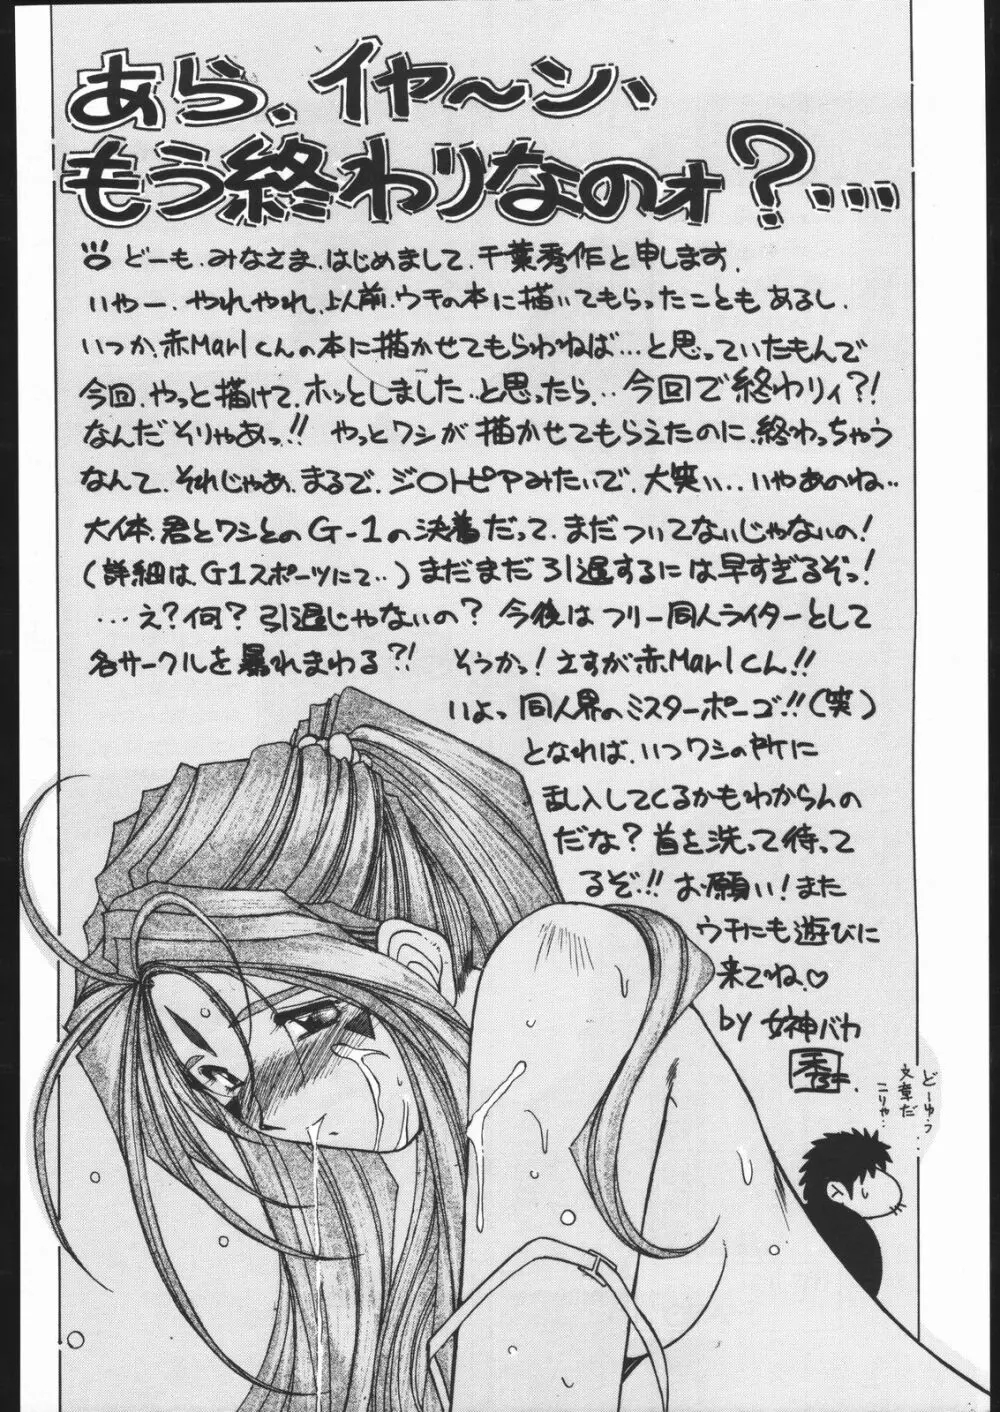 あら、イヤ～ン、
もう終わりなのォ?…
どーも、みなさま、はじめまして、千葉秀作と申します。
いやー、やれやれ、以前、ウチの本に描いてもらったこともあるし、
いつか、赤Marlくんの本に描かせてもらわねば…と思っていたもんで
今回、やっと描けて、ホッとしました…と思ったら…今回で終わりィ?!
なんだそりゃあっ!! やっとワシが描かせてもらえたのに、終わっちゃう
なんて、それじゃあ、まるで、ジ〇トピアみたいで、大笑い…いやあのね…
大体、君とワシとのG-1の決着だって、まだついてないじゃないの!
(詳細は、G1スポーツにて…)まだまだ引退するには早すぎるぞっ!
…え?何?引退じゃないの?今後はフリー同人ライターとして
各サークルを暴れまわる?! そうかっ!さすが赤Marlくん!!
いよっ同人界のミスターポーゴ!!(笑)
となれば、いつワシの所に
乱入してくるかもわからんの
だな?首を洗って待って
るぞ!!お願い!また
ウチにも遊びに
来てね♡
by 女神バカ
秀
どーゆう…
文章だ
こりゃ…